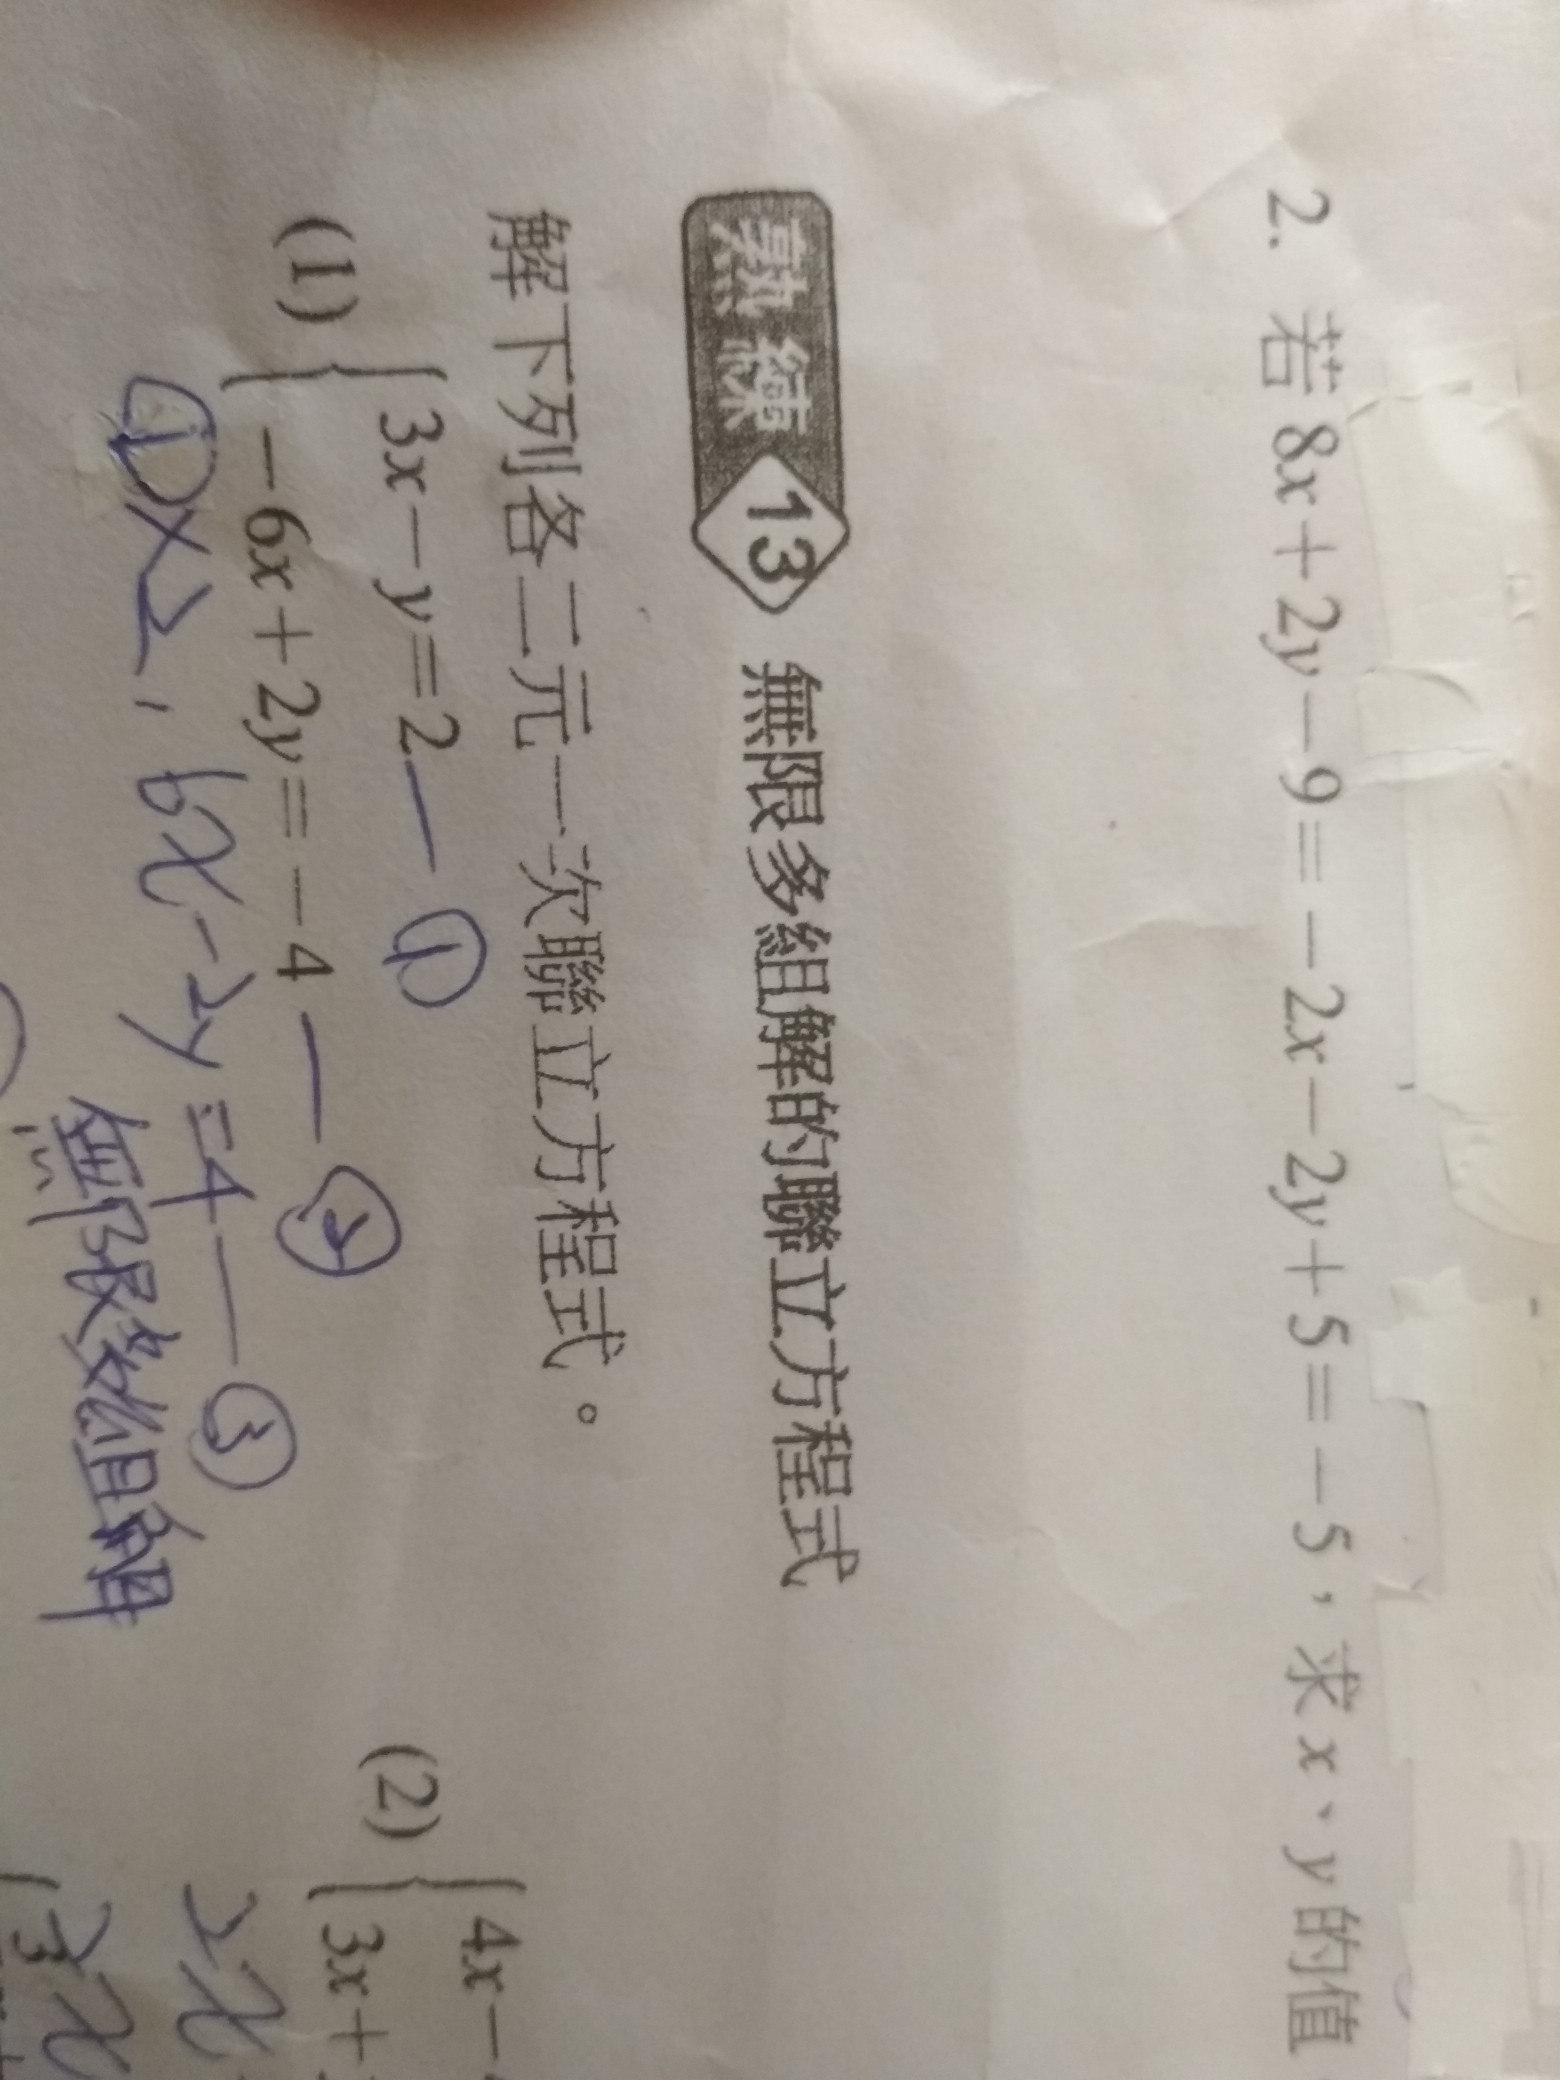 2. 若 8x+2y-9=-2x-2y+5=-5，求 x、y 的值
熟練 13 無限多組解的聯立方程式
解下列各二元一次聯立方程式。
(1) { 3x-y=2 — ①
-6x+2y=-4 — ②
①×2, 6x-2y=4 — ③
無限多組解
(2) { 4x-
3x+
2x
3x